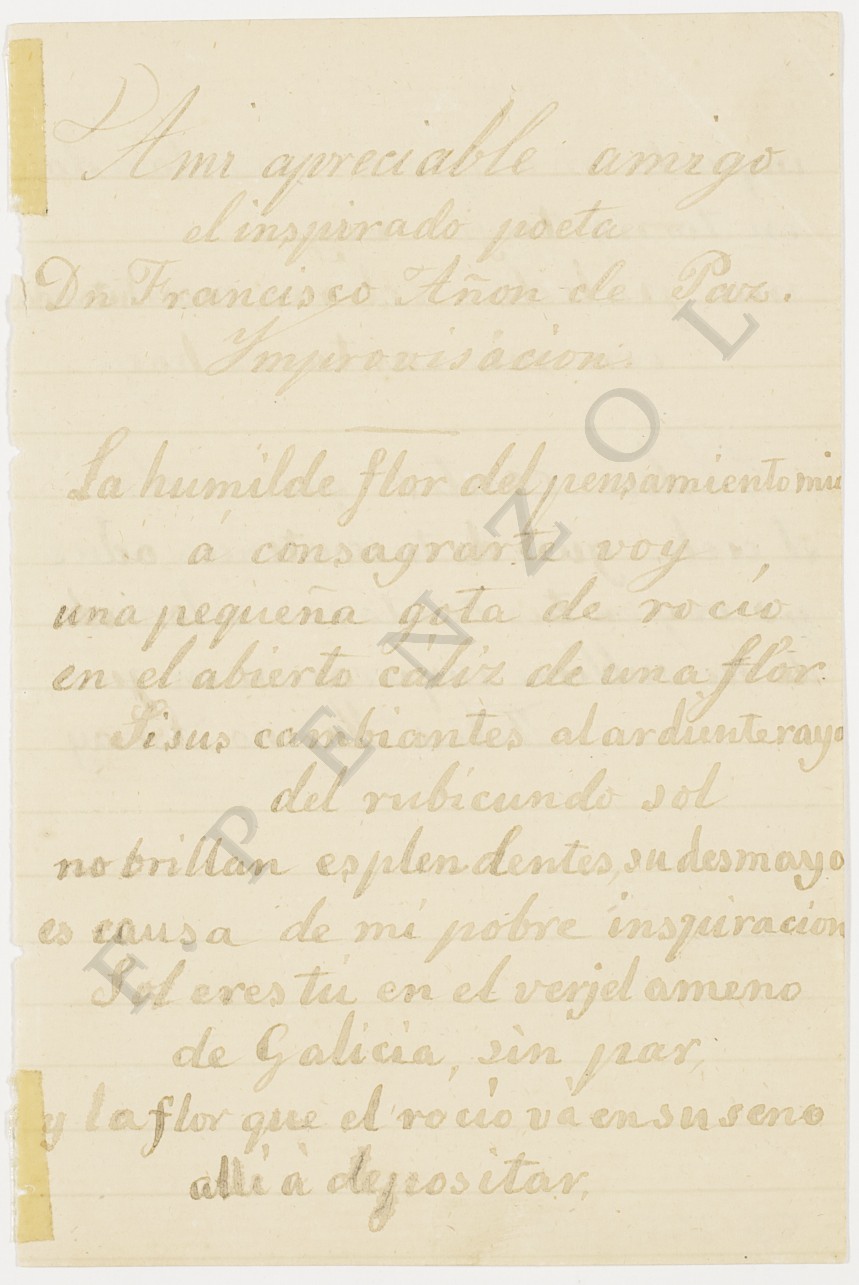 A mi apreciable amigo
el inspirado poeta
Dn Francisco Añon de Paz.
Ymprovisacion.
La humilde flor del pensamiento mio
á consagrarte voy
una pequeña gota de rocío
en el abierto cáliz de una flor.
Si sus cambiantes al ardiente rayo
del rubicundo sol
no brillan esplendentes, su desmayo
es causa de mi pobre inspiracion
Sol eres tú en el verjel ameno
de Galicia, sin par,
y la flor que el rocío vá en su seno
alli á depositar,
F. PENZOL